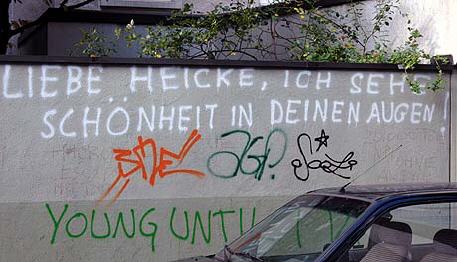 LIEBE HEICKE, ICH SEHE
SCHÖNHEIT IN DEINEN AUGEN!
YOUNG UNTIL I